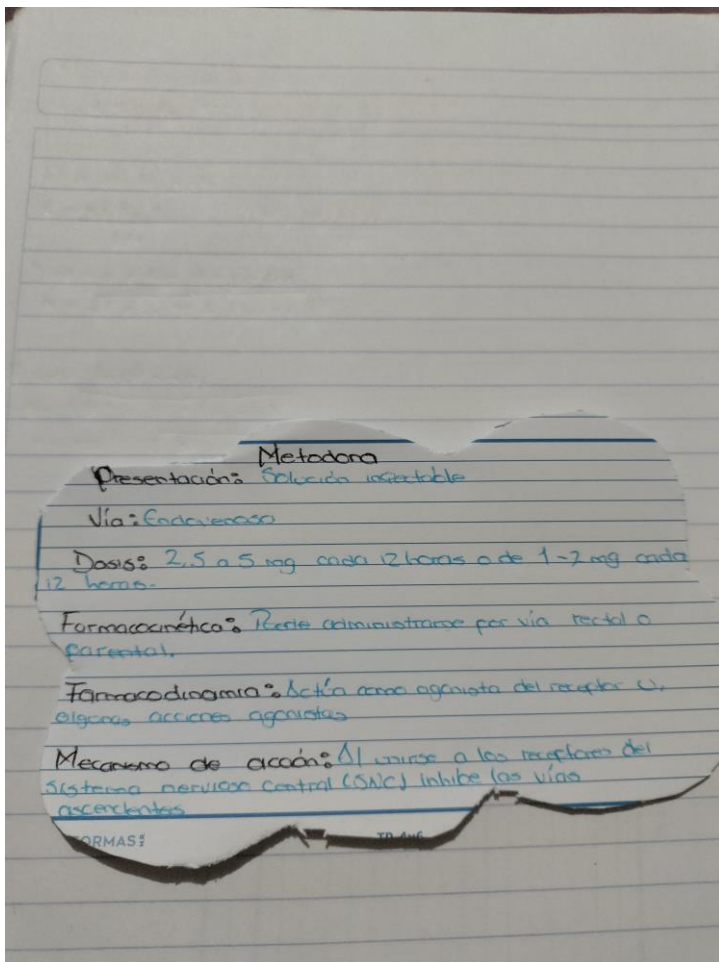 Metadona
Presentación: Solución inyectable
Vía: Endovenosa
Dosis: 2,5 a 5 mg cada 12 horas o de 1-2 mg cada
12 horas.
Farmacocinética: Puede administrarse por vía rectal o
parental.
Farmacodinamia: Actúa como agonista del receptor U,
algunas acciones agonistas
Mecanismo de acción: Al unirse a los receptores del
Sistema nervioso Central (SNC) inhibe las vías
ascendentes
FORMAS